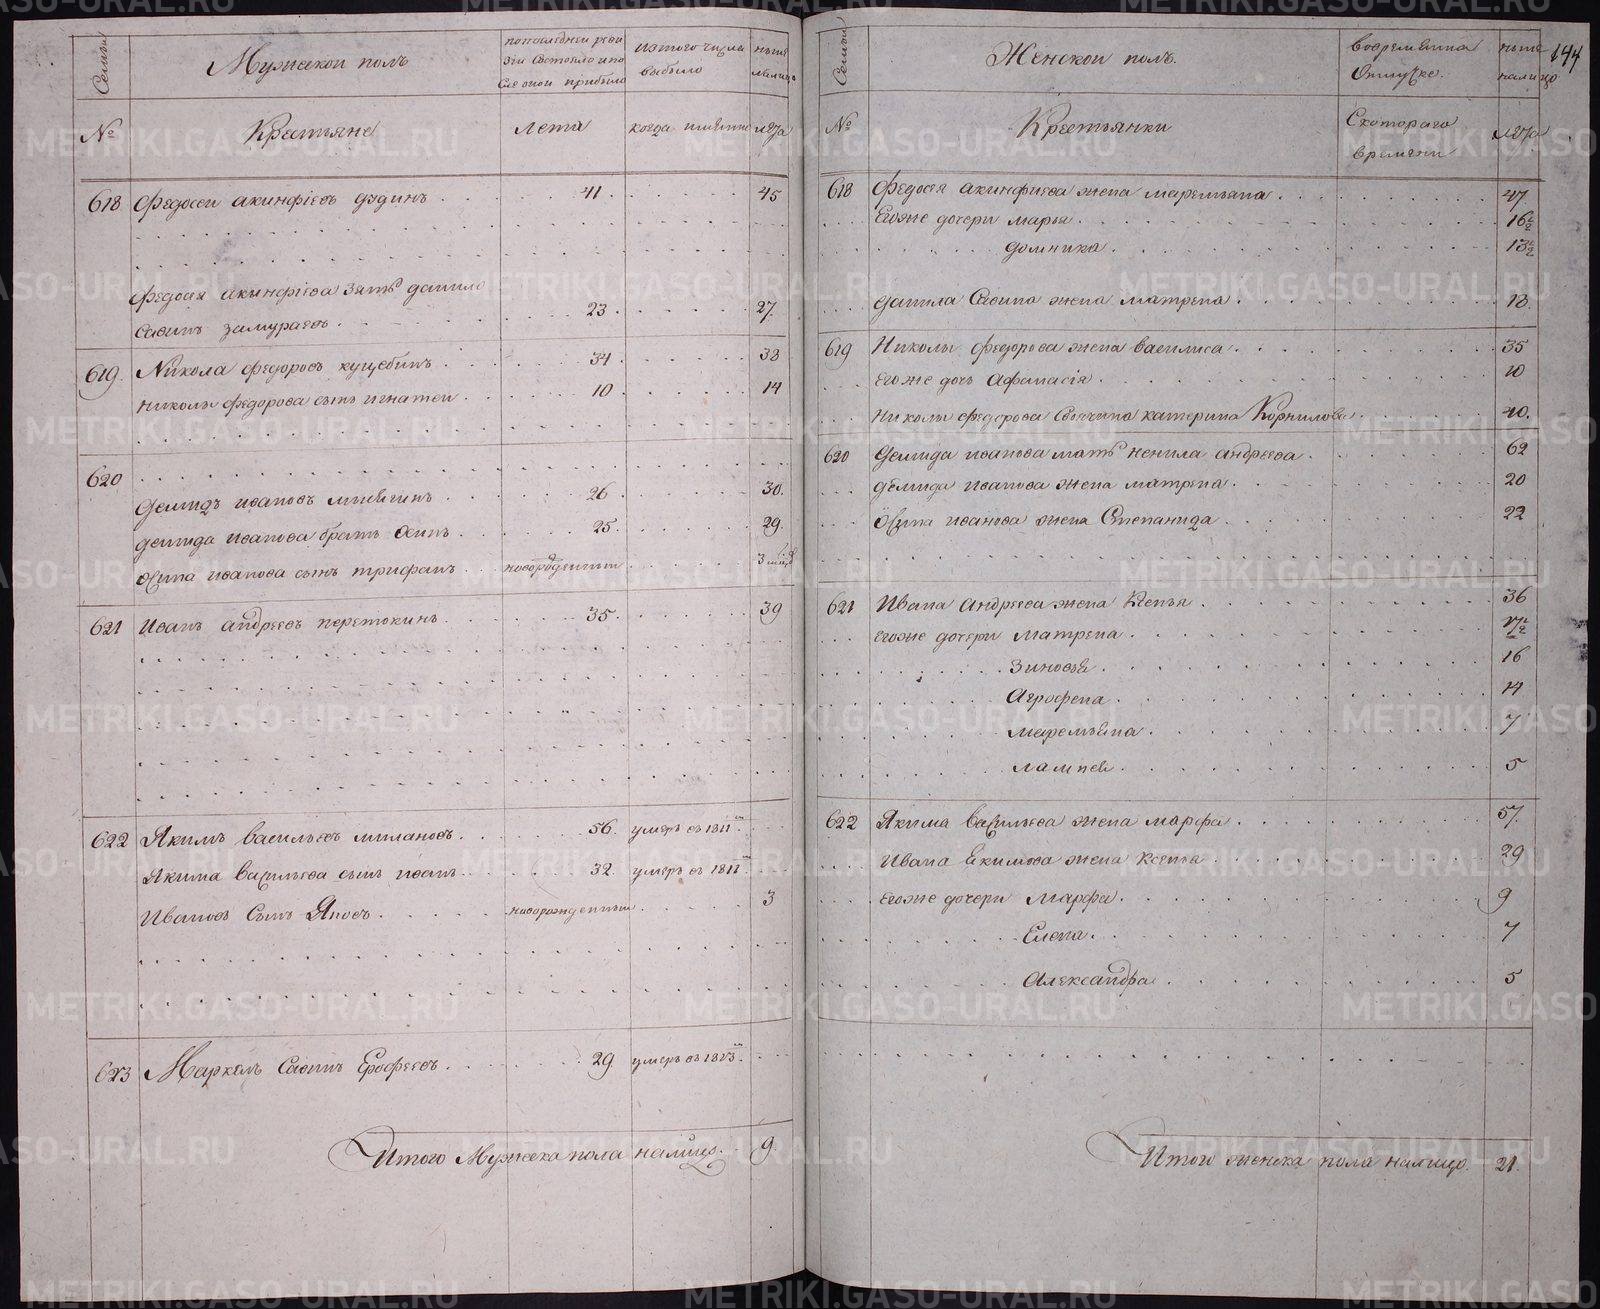 Семьи
Мужской полъ
по последней реви
зіи состояло и по
сле оной прибыло
из того числа
выбыло
ныне
налицо
№
Крестьяне
лета
когда именно
лета
618 Федосеи акинфіевъ дудинъ 41 45
Федосея акинфіева зять данило
савинъ замураевъ 23 27
619 Никола федоровъ кущебинъ 34 38
николы федорова сынъ игнатеи 10 14
620
демидъ ивановъ 26 30
демида иванова братъ осипъ 25 29
осипа иванова сынъ трифанъ новорожденныи 3
621 Иванъ андреевъ перетокинъ 35 39
622 Якимъ васильевъ милановъ 56 умеръ въ 1811
Якима васильева сынъ иванъ 32 умеръ въ 1811
Ивановъ сынъ Яковъ новорожденныи 3
623 Маркелъ Савинъ Ерофеевъ 29 умеръ въ 1813
Итого Мужеска пола налицо 9
Семьи
Женской полъ
во временна
отлучке
ныне
налицо
144
№
Крестьянки
С котораго
времени
лета
618 Федосея акинфиева жена маремьяна 47
Его же дочери марья 16
домника 13
данила Савина жена матрена 18
619 Николы федорова жена василиса 35
его же дочь Афанасія 10
николы федорова катерина Корнилова 40
620 Демида иванова мать ненила андреева 62
демида иванова жена матрена 20
осипа иванова жена Степанида 22
621 Ивана андреева жена Ксенья 36
его же дочери матрена 17
зиновья 16
Агрофена 14
маремьяна 7
622 Якима васильева жена марфа 57
Ивана Екимова жена Ксенья 29
его же дочери марфа 9
Елена 7
Александра 5
Итого женска пола налицо 21
METRIKI.GASO-URAL.RU